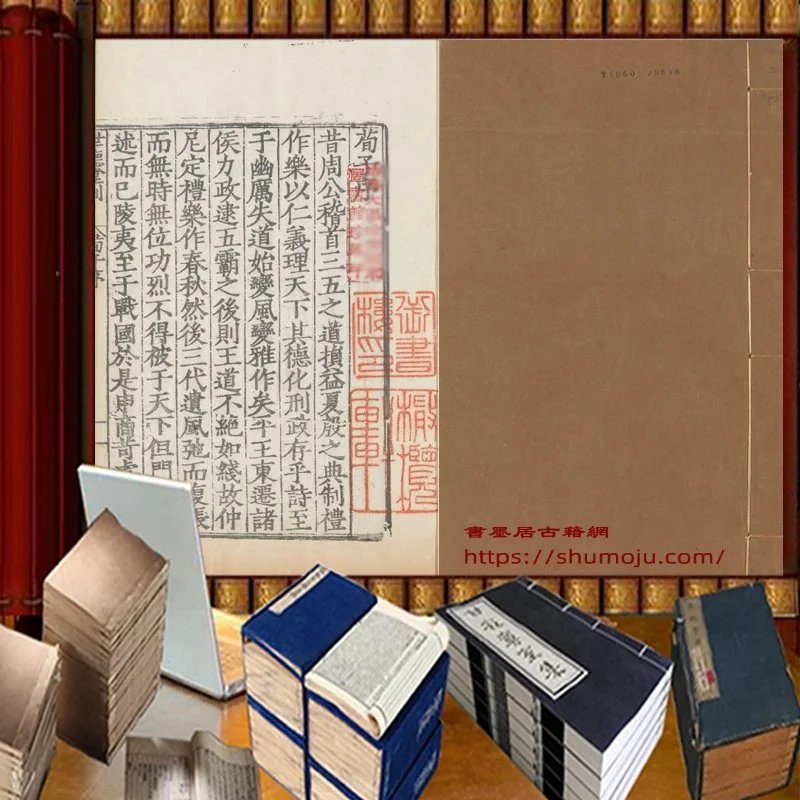 荀子序
昔周公稽首三五之道損益夏殷之典制禮
作樂以仁義理天下其德化刑政存乎詩至
于幽厲失道始變風變雅作矣平王東遷諸
侯力政逮五霸之後則王道不絕如綫故仲
尼定禮樂作春秋然後三代遺風弛而復張
而無時無位功烈不得被于天下但門
述而已陵夷至于戰國於是申商苛
荀子序
御書
書墨居古籍網
https://shumoju.com/